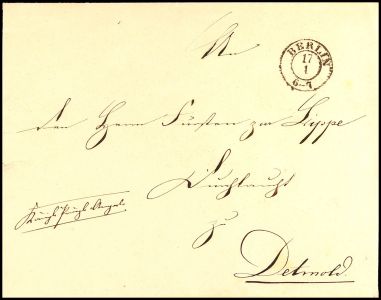 An
BERLIN
17
1
6-7
den Herrn Fürsten zur Lippe
Durchlaucht
zu
Detmold.